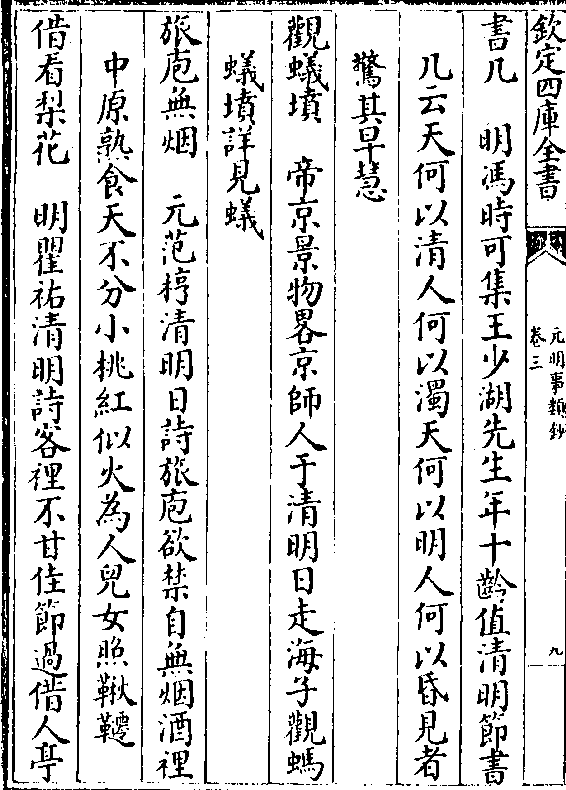 欽定四庫全書
元明事類鈔
卷三
九
書几　明馮時可集王少湖先生年十齡值清明節書
几云天何以清人何以濁天何以明人何以昏見者
驚其早慧
觀蟻墳　帝京景物畧京師人于清明日走海子觀螞
蟻墳詳見蟻
旅庖無烟　元范梈清明日詩旅庖欲禁自無烟酒裡
中原熟食天不分小桃紅似火為人兒女照鞦韆
借看梨花　明瞿祐清明詩客裡不甘佳節過借人亭